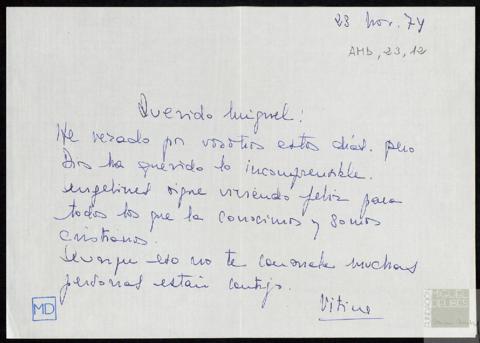 23 Nov. 74
AMD, 23, 12
Querido Miguel:
He rezado por vosotros estos días. pero
Dios ha querido lo incomprensible.
Angelines sigue viviendo feliz para
todos los que la conocimos y somos
cristianos.
Aunque eso no te consuela muchas
personas están contigo.
Vitine
MD
FUNDACIÓN
MIGUEL
DELIBES